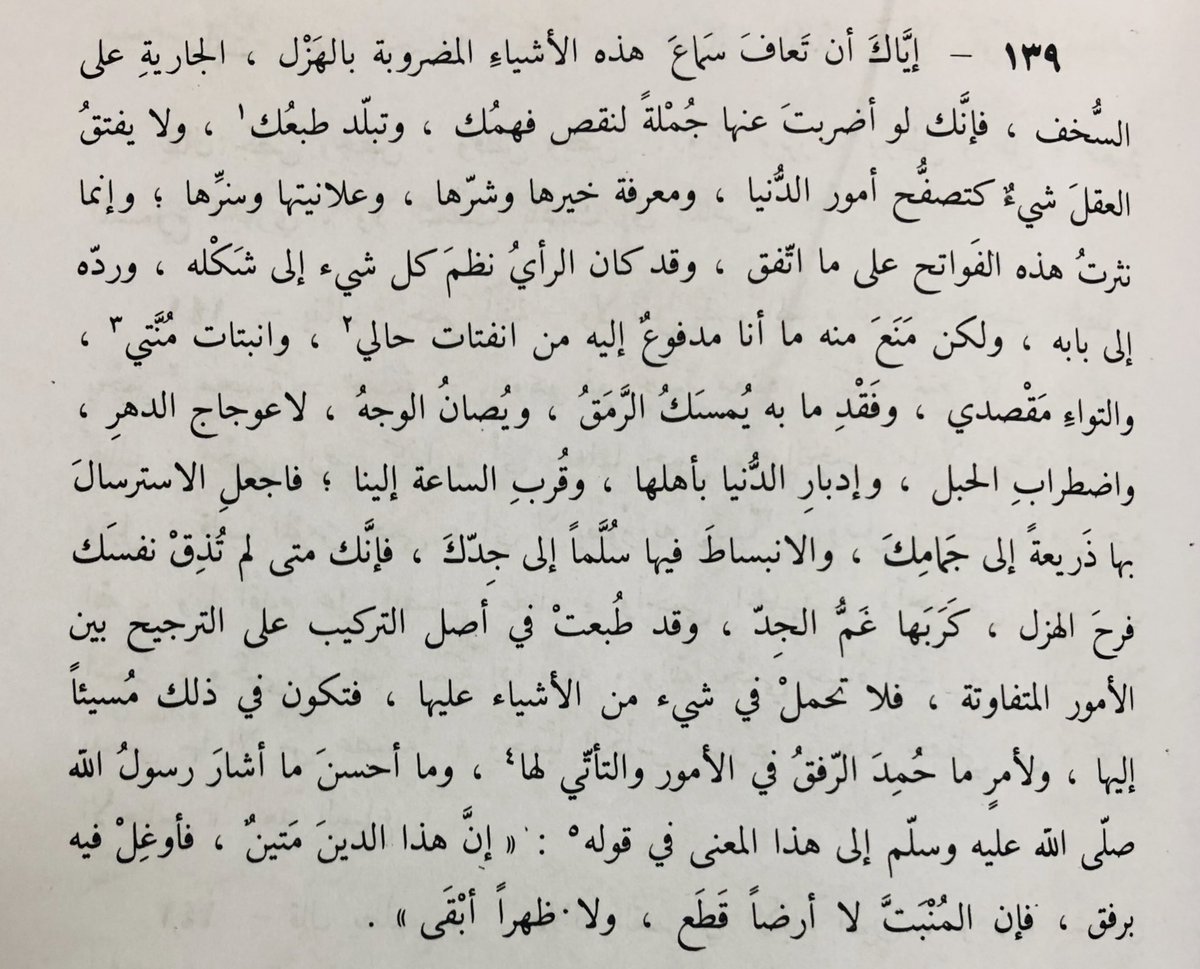 ١٣٩ – إيَّاكَ أن تَعافَ سَماعَ هذه الأشياءِ المضروبة بالهَزْل ، الجاريةِ على
السُّخف ، فإنَّك لو أضربتَ عنها جُمْلةً لنقص فهمُك ، وتبلّد طبعُك١ ، ولا يفتقُ
العقلَ شيءٌ كتصفُّح أمور الدُّنيا ، ومعرفة خيرها وشرّها ، وعلانيتها وسرِّها ؛ وإنما
نثرتُ هذه الفَواتح على ما اتّفق ، وقد كان الرأيُ نظمَ كل شيء إلى شَكْله ، وردّه
إلى بابه ، ولكن مَنَعَ منه ما أنا مدفوعٌ إليه من انفتات حالي٢ ، وانبتات مُنَّتي٣ ،
والتواءِ مَقْصدي ، وفَقْدِ ما به يُمسَكُ الرَّمَقُ ، ويُصانُ الوجهُ ، لاعوجاج الدهرِ ،
واضطرابِ الحبل ، وإدبارِ الدُّنيا بأهلها ، وقُربِ الساعة إلينا ؛ فاجعلِ الاسترسالَ
بها ذَريعةً إلى جَمامِكَ ، والانبساطَ فيها سُلَّماً إلى جِدّكَ ، فإنَّك متى لم تُذِقْ نفسَك
فرحَ الهزل ، كَرَبَها غَمُّ الجِدّ ، وقد طُبعتْ في أصل التركيب على الترجيح بين
الأمور المتفاوتة ، فلا تحملْ في شيء من الأشياء عليها ، فتكون في ذلك مُسيئاً
إليها ، ولأمرٍ ما حُمِدَ الرّفقُ في الأمور والتأتّي لها٤ ، وما أحسنَ ما أشارَ رسولُ الله
صلّى الله عليه وسلّم إلى هذا المعنى في قوله٥ : « إنَّ هذا الدينَ مَتينٌ ، فأوغِلْ فيه
برفق ، فإن المُنْبَتَّ لا أرضاً قَطَع ، ولا ظهراً أبْقَى » .